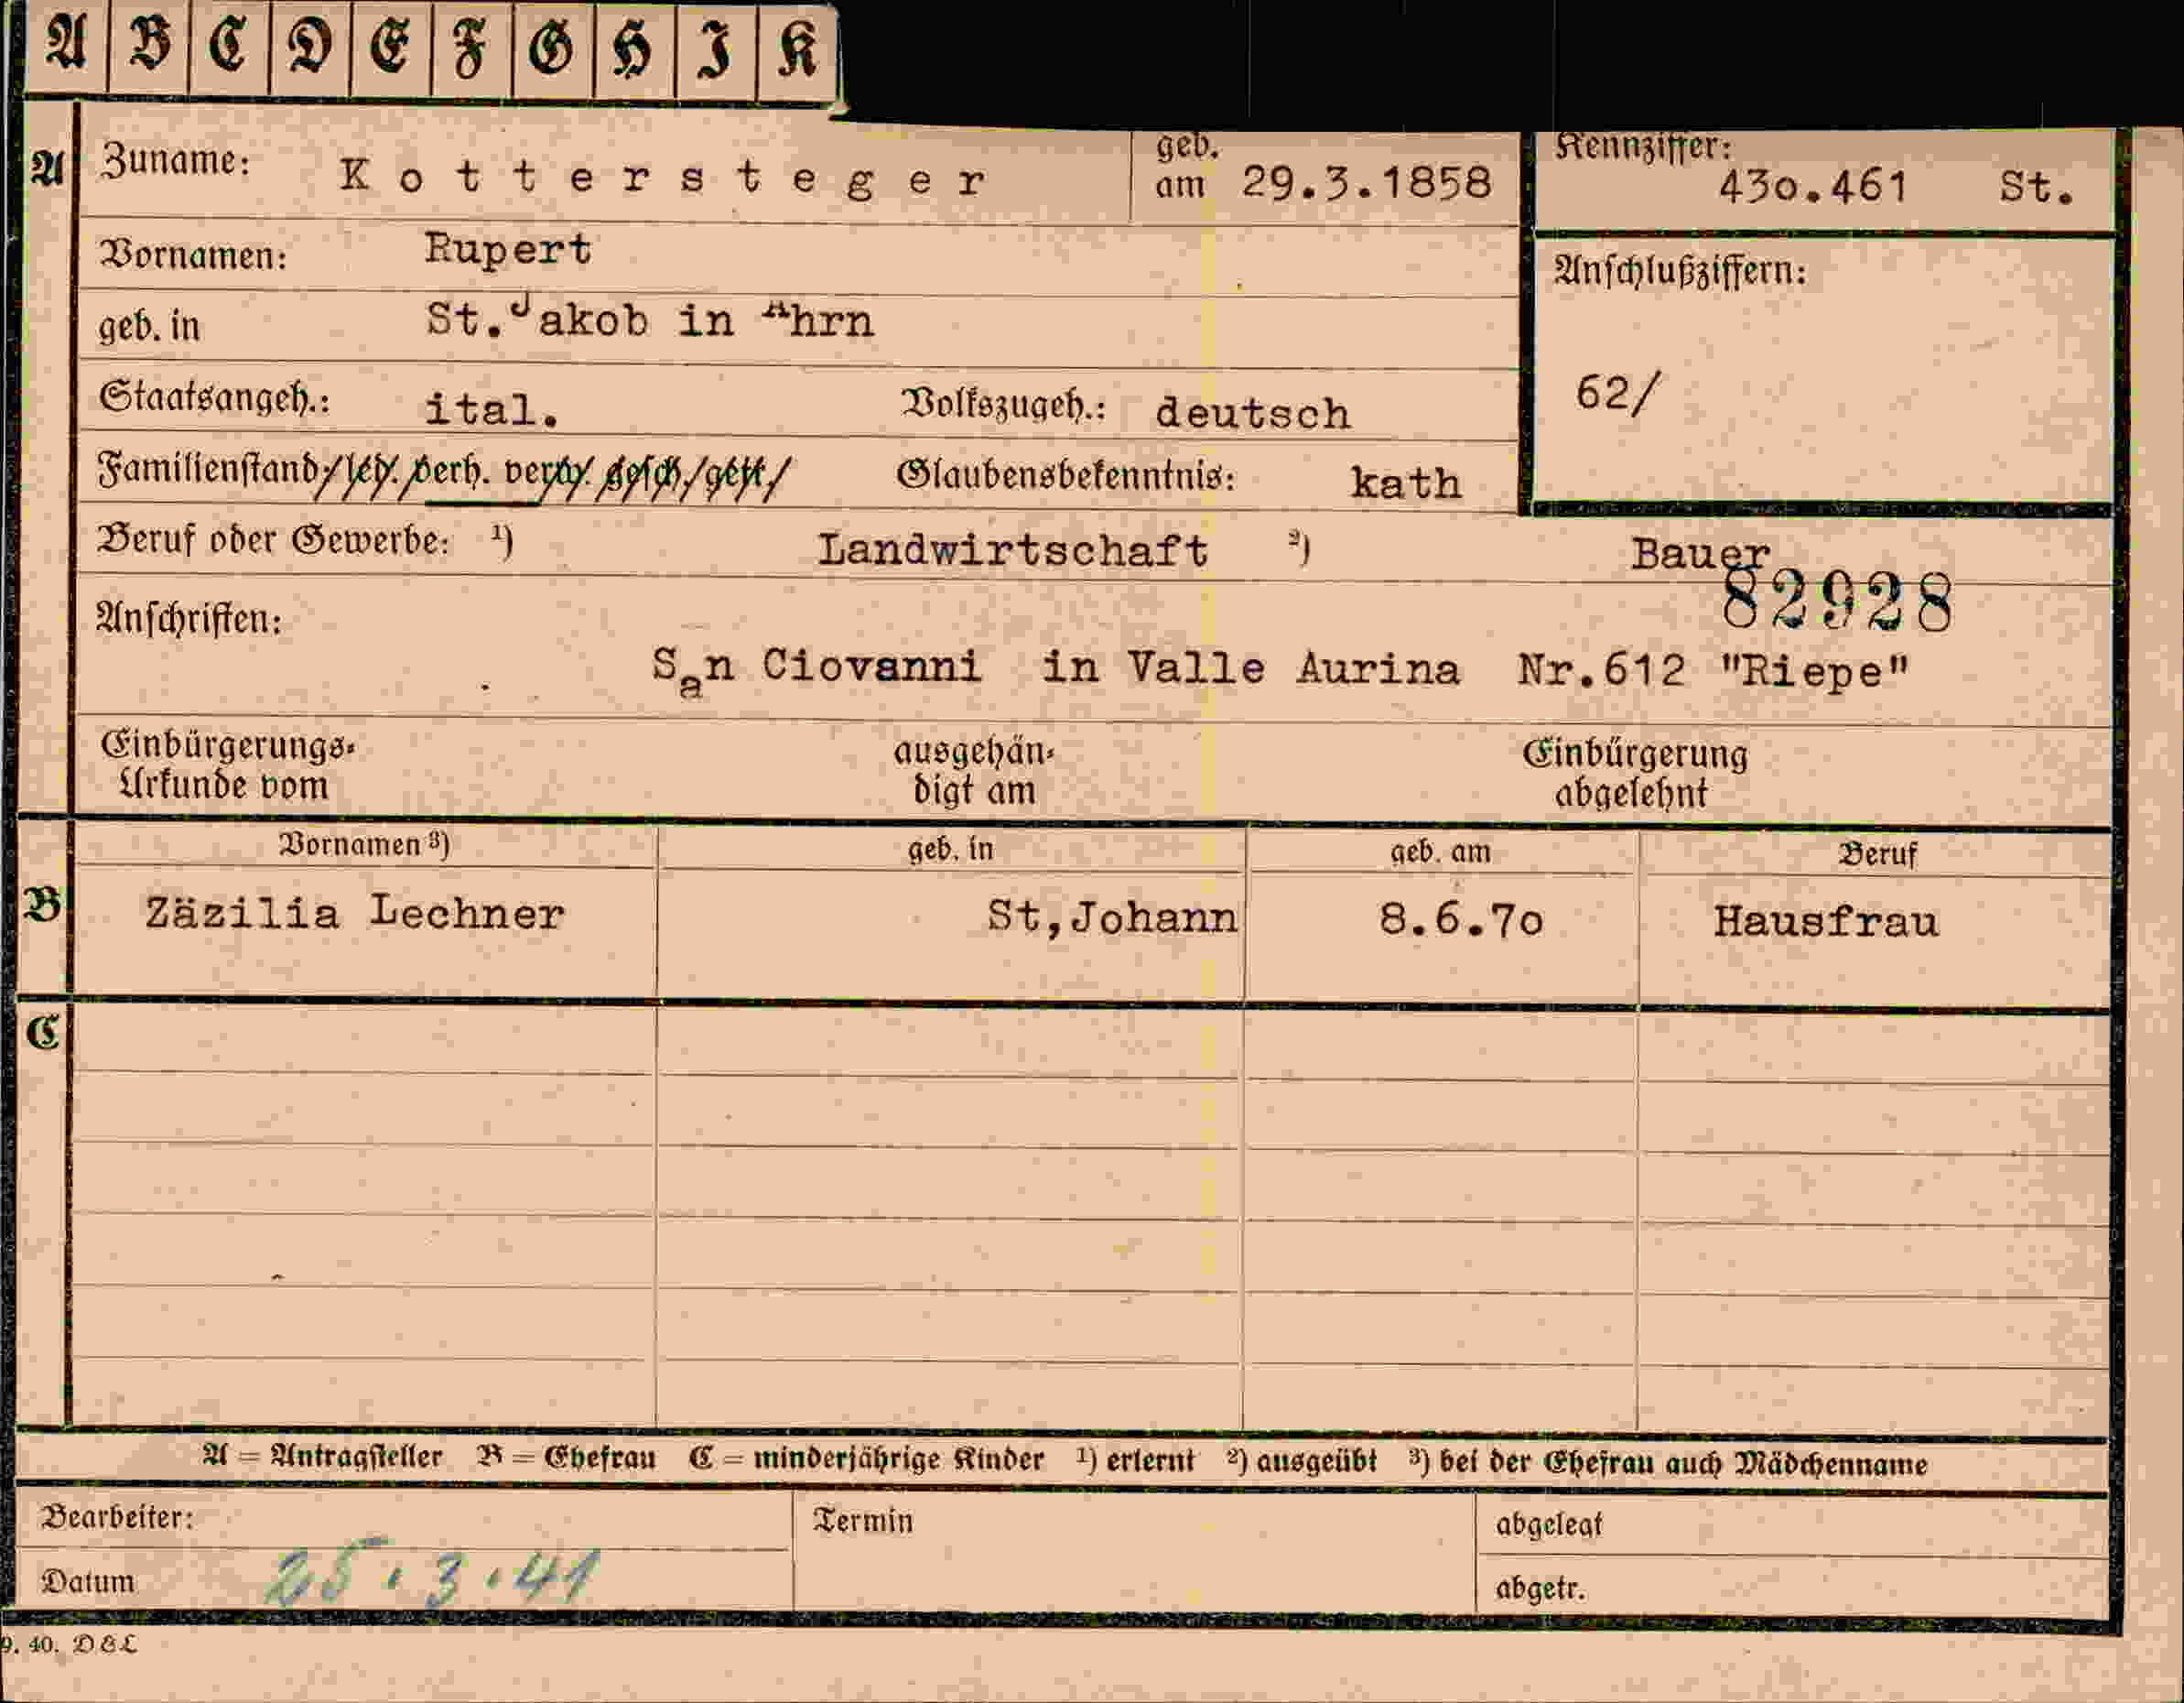 A B C D E F G H I K
A Zuname: Kottersteger geb. am 29.3.1858 Kennziffer: 430.461 St.
Vornamen: Rupert
Anschlußziffern:
geb. in St.Jakob in Ahrn
62/
Staatsangeh.: ital. Volkszugeh.: deutsch
Familienstand: led. verh. verw. gesch. getr. Glaubensbekenntnis: kath
Beruf oder Gewerbe: ¹) Landwirtschaft ²) Bauer
82928
Anschriften:
San Ciovanni in Valle Aurina Nr.612 "Riepe"
Einbürgerungs- ausgehän- Einbürgerung
Urkunde vom digt am abgelehnt
Vornamen ³) geb. in geb. am Beruf
B Zäzilia Lechner St,Johann 8.6.7o Hausfrau
C
A = Antragsteller B = Ehefrau C = minderjährige Kinder ¹) erlernt ²) ausgeübt ³) bei der Ehefrau auch Mädchenname
Bearbeiter: Termin abgelegt
Datum 25.3.41 abgetr.
9. 40. D&L